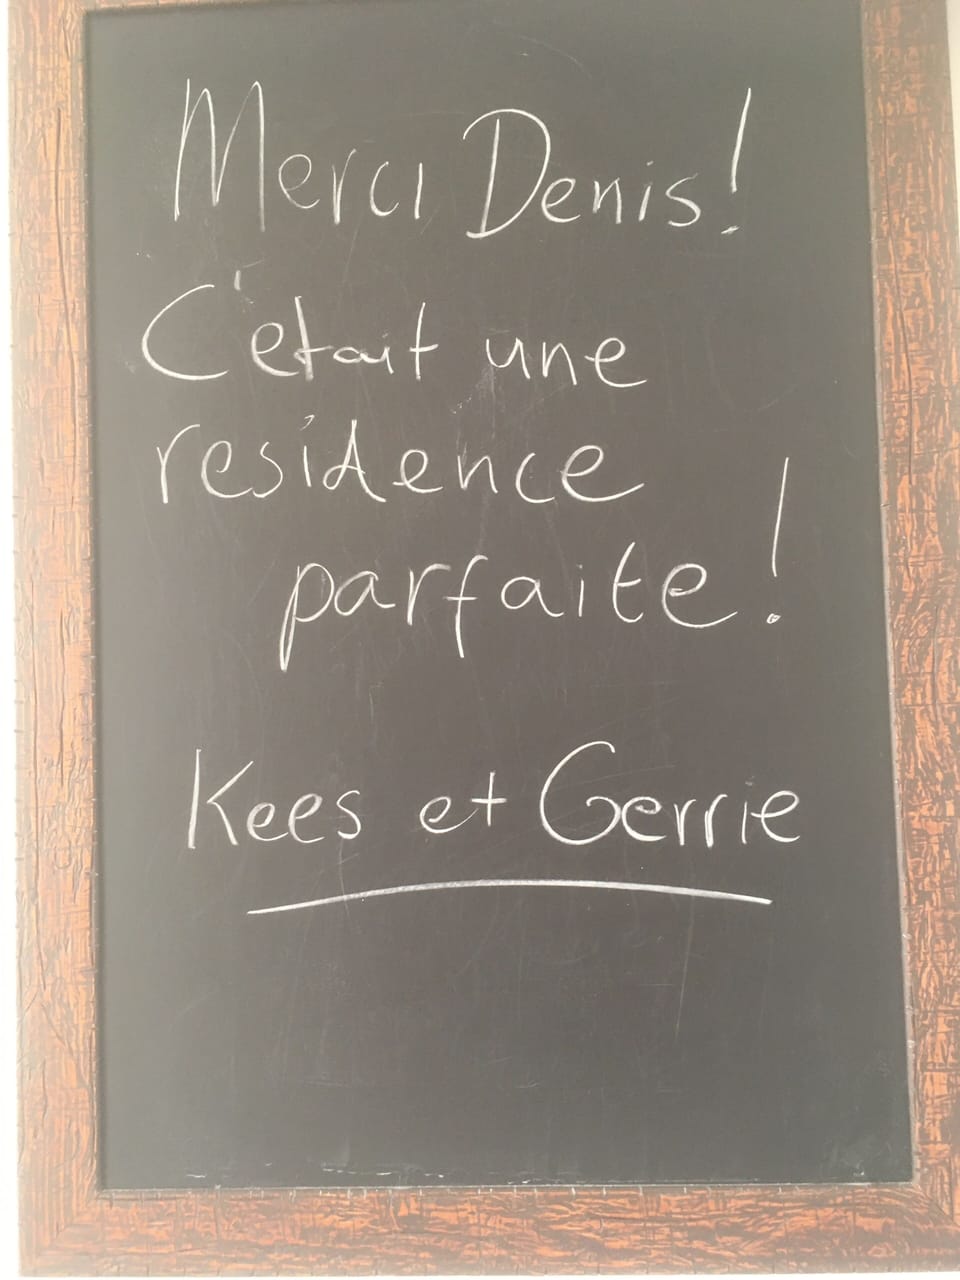 Merci Denis!
C'etait une
residence
parfaite!
Kees et Gerrie